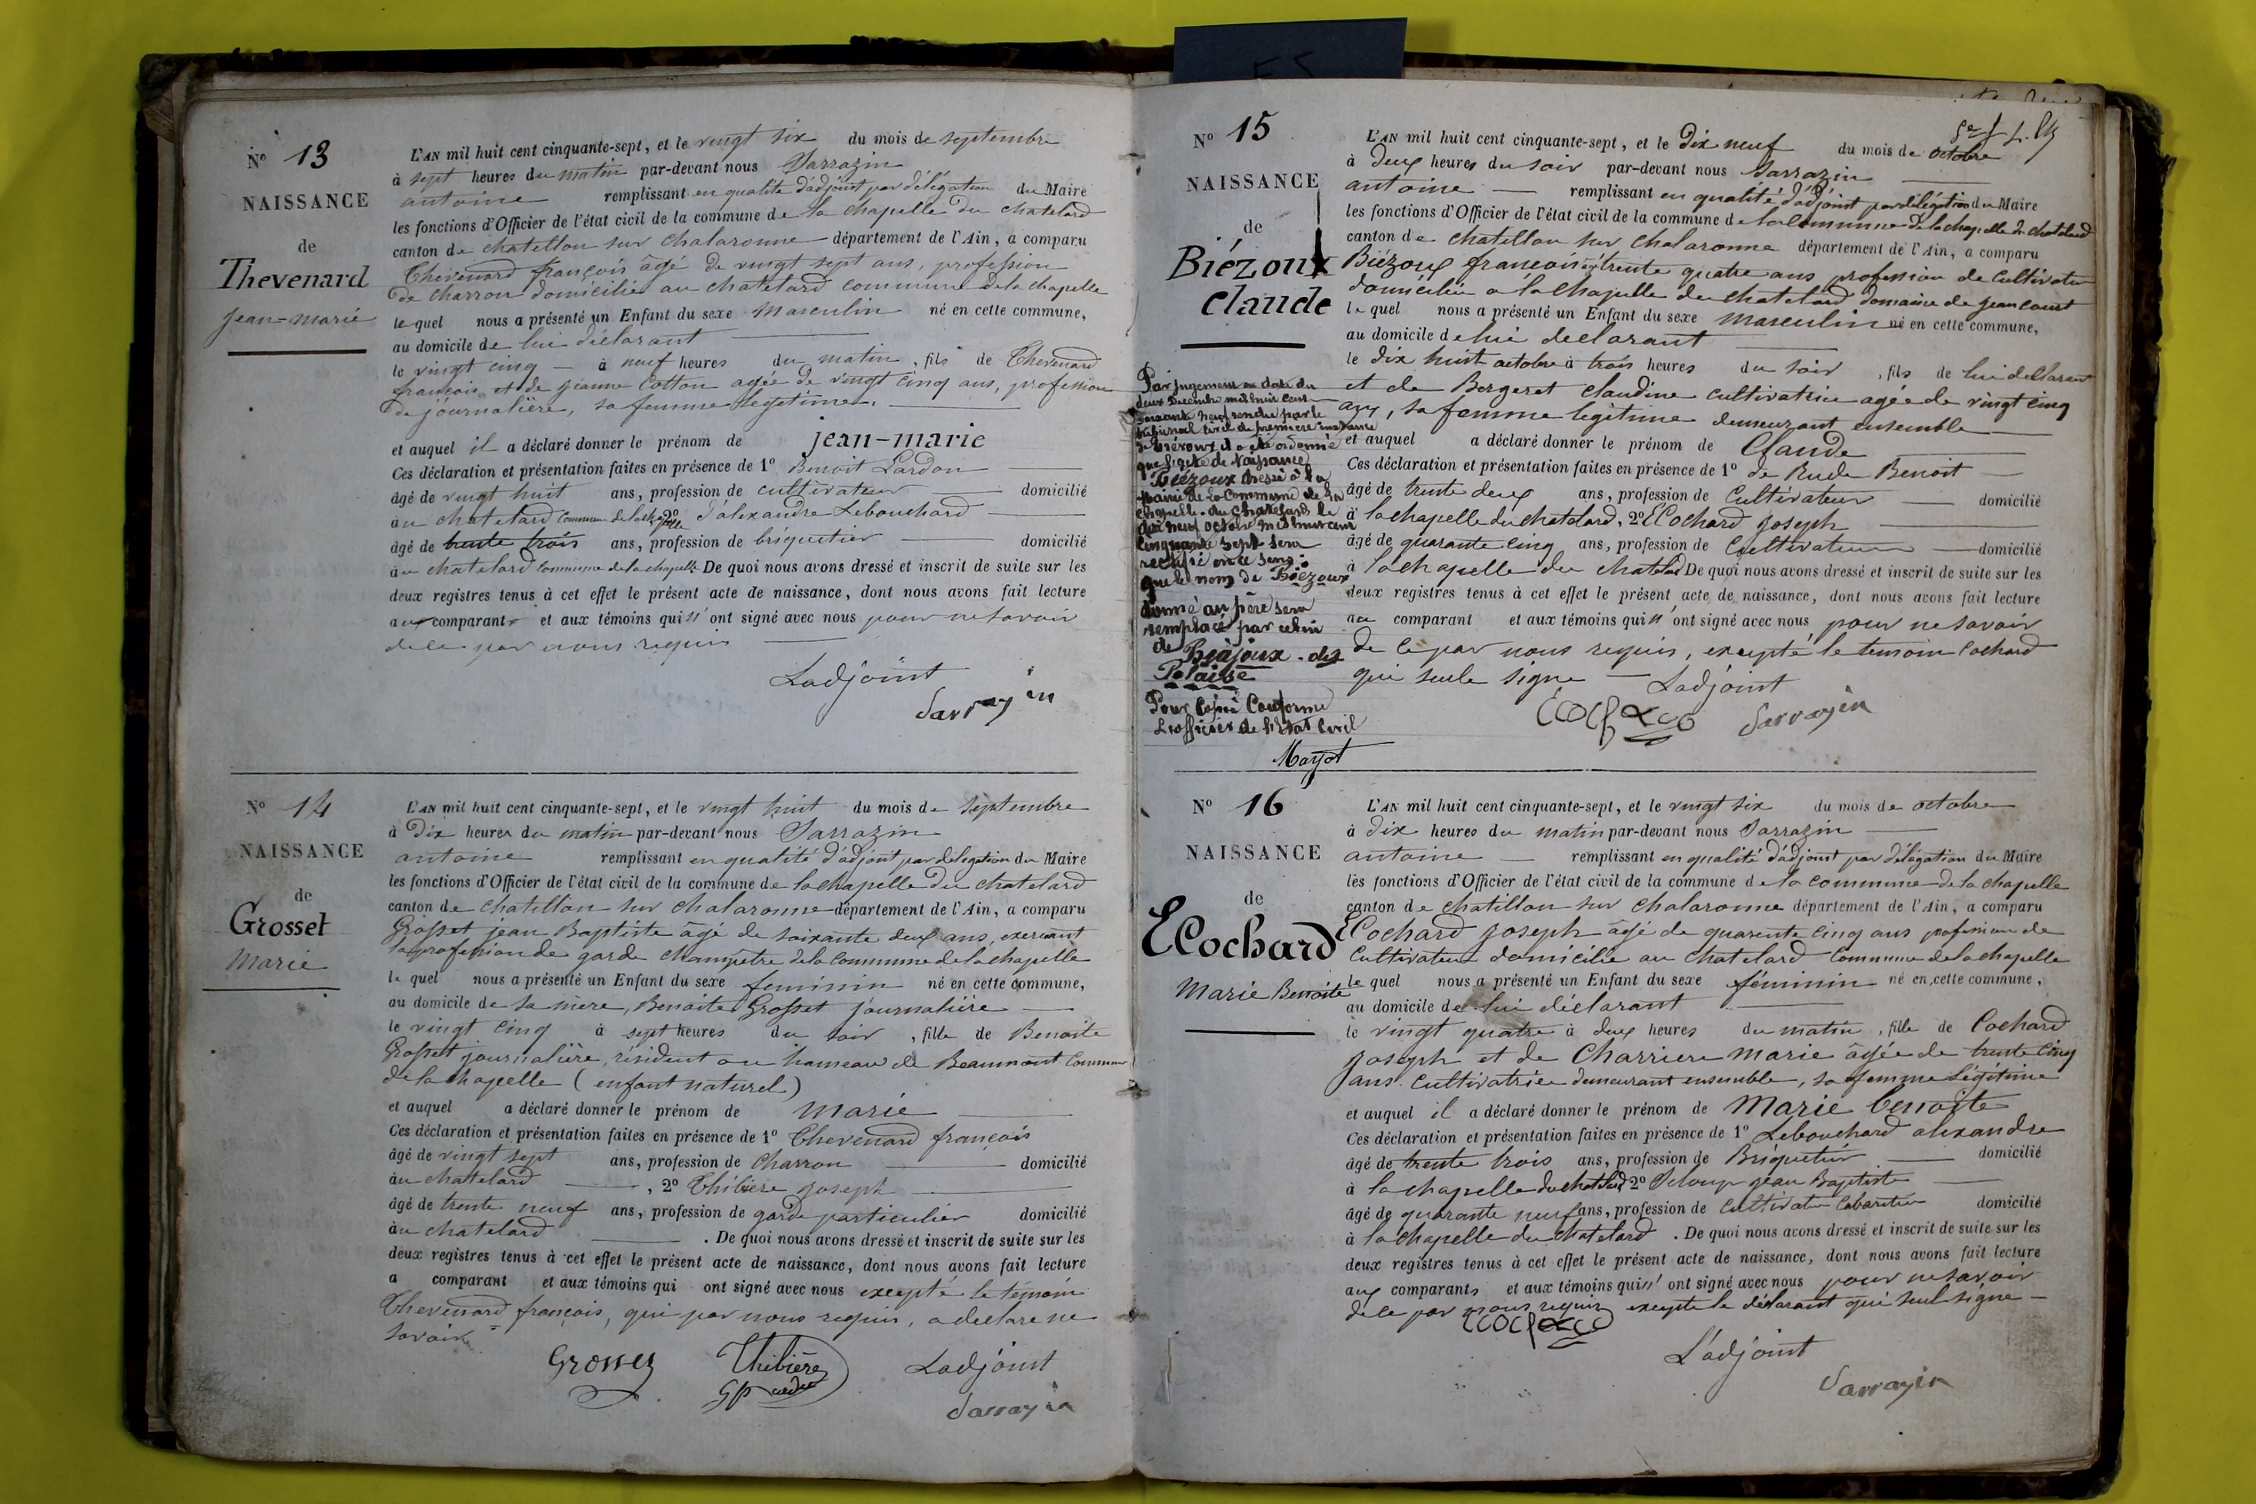 ES
N° 13
NAISSANCE
de
Thevenard
jean-marie
L'AN mil huit cent cinquante-sept, et le vingt six du mois de septembre
à sept heures du matin par-devant nous Sarrazin
antoine remplissant en qualité d'adjoint par délégation du Maire
les fonctions d'Officier de l'état civil de la commune de la chapelle du chatelard
canton de chatillon sur chalaronne département de l'Ain, a comparu
Thevenard françois âgé de vingt sept ans, profession
de charron domicilié au chatelard commune de la chapelle
lequel nous a présenté un Enfant du sexe masculin né en cette commune,
au domicile de lui déclarant
le vingt cinq à neuf heures du matin, fils de Thevenard
françois et de jeanne Cotton agée de vingt cinq ans, profession
de journalière, sa femme légitime.
et auquel il a déclaré donner le prénom de jean-marie
Ces déclaration et présentation faites en présence de 1° Benoit Lardon
âgé de vingt huit ans, profession de cultivateur domicilié
au chatelard commune de la chapelle 2° d'alexandre Lebouchard
âgé de trente trois ans, profession de briquetier domicilié
au chatelard commune de la chapelle De quoi nous avons dressé et inscrit de suite sur les
deux registres tenus à cet effet le présent acte de naissance, dont nous avons fait lecture
au comparant et aux témoins qui n'ont signé avec nous pour ne savoir
de ce par nous requis
L'adjoint
Sarrazin
N° 14
NAISSANCE
de
Grosset
Marie
L'AN mil huit cent cinquante-sept, et le vingt huit du mois de septembre
à dix heures du matin par-devant nous Sarrazin
antoine remplissant en qualité d'adjoint par délégation du Maire
les fonctions d'Officier de l'état civil de la commune de la chapelle du chatelard
canton de chatillon sur chalaronne département de l'Ain, a comparu
Grosset jean Baptiste agé de soixante deux ans, exercant
la profession de garde champêtre de la commune de la chapelle
lequel nous a présenté un Enfant du sexe feminin né en cette commune,
au domicile de sa mère, Benoite Grosset journalière
le vingt cinq à sept heures du soir, fille de Benoite
Grosset journalière, résident au hameau de Beaumont Commune
de la chapelle (enfant naturel)
et auquel a déclaré donner le prénom de marie
Ces déclaration et présentation faites en présence de 1° Thevenard françois
âgé de vingt sept ans, profession de charron domicilié
au chatelard, 2° Thibière joseph
âgé de trente neuf ans, profession de garde particulier domicilié
au chatelard. De quoi nous avons dressé et inscrit de suite sur les
deux registres tenus à cet effet le présent acte de naissance, dont nous avons fait lecture
a comparant et aux témoins qui ont signé avec nous excepté le témoin
Thevenard françois, qui par nous requis, a déclaré ne
savoir
Grosset Thibière L'adjoint
Sarrazin
N° 15
NAISSANCE
de
Biézoux
claude
L'AN mil huit cent cinquante-sept, et le dix neuf du mois de octobre
à deux heures du soir par-devant nous Sarrazin
antoine remplissant en qualité d'adjoint par délégation du Maire
les fonctions d'Officier de l'état civil de la commune de la commune de la chapelle du chatelard
canton de chatillon sur chalaronne département de l'Ain, a comparu
Biézoux francois agé trente quatre ans profession de cultivateur
domicilié a la chapelle du chatelard domaine de
lequel nous a présenté un Enfant du sexe masculin né en cette commune,
au domicile de lui declarant
le dix huit octobre à trois heures du soir, fils de lui déclarant
et de Bergeret claudine cultivatrice agée de vingt cinq
ans, sa femme legitime demeurant ensemble
et auquel a déclaré donner le prénom de Claude
Ces déclaration et présentation faites en présence de 1° de Rude Benoit
âgé de trente deux ans, profession de cultivateur domicilié
à la chapelle du chatelard, 2° ECochard joseph
âgé de quarante cinq ans, profession de cultivateur domicilié
à la chapelle du chatelard De quoi nous avons dressé et inscrit de suite sur les
deux registres tenus à cet effet le présent acte de naissance, dont nous avons fait lecture
au comparant et aux témoins qui n'ont signé avec nous pour ne savoir
de ce par nous requis, excepté le temoin Cochard
qui seule signe L'adjoint
Sarrazin
Par jugement en date du
deux Decembre mil huit cent
soixante neuf rendu par le
tribunal civil de première instance
de Trévoux il a été ordonné
que l'acte de Naissance
Biézoux dressé à la
mairie de la commune de la
chapelle-du-chatelard, le
dix neuf octobre mil huit cent
cinquante sept sera
rectifié en ce sens:
que le nom de Biézoux
donné au père sera
remplacé par celui
de Biajoux - dit
Pelaisse
Pour Copie Conforme
L'officier de l'Etat Civil
N° 16
NAISSANCE
de
ECochard
Marie Benoite
L'AN mil huit cent cinquante-sept, et le vingt six du mois de octobre
à dix heures du matin par-devant nous Sarrazin
antoine remplissant en qualité d'adjoint par délégation du Maire
les fonctions d'Officier de l'état civil de la commune de la commune de la chapelle
canton de chatillon sur chalaronne département de l'Ain, a comparu
ECochard joseph âgé de quarente cinq ans profession de
Cultivateur domicilié au chatelard Commune de la chapelle
lequel nous a présenté un Enfant du sexe féminin né en cette commune,
au domicile de lui déclarant
le vingt quatre à deux heures du matin, fille de Cochard
joseph et de Charriere marie âgée de trente cinq
ans. Cultivatrice demeurant ensemble, sa femme Légitime
et auquel il a déclaré donner le prénom de Marie benoite
Ces déclaration et présentation faites en présence de 1° Lebouchard alexandre
âgé de trente trois ans, profession de Briquetier domicilié
à la chapelle du chatelard 2° jean Baptiste
âgé de quarante neuf ans, profession de cultivateur Cabaretier domicilié
à la chapelle du chatelard. De quoi nous avons dressé et inscrit de suite sur les
deux registres tenus à cet effet le présent acte de naissance, dont nous avons fait lecture
aux comparants et aux témoins qui n'ont signé avec nous pour ne savoir
de ce par nous requis excepté le déclarant qui seul signe
L'adjoint
Sarrazin